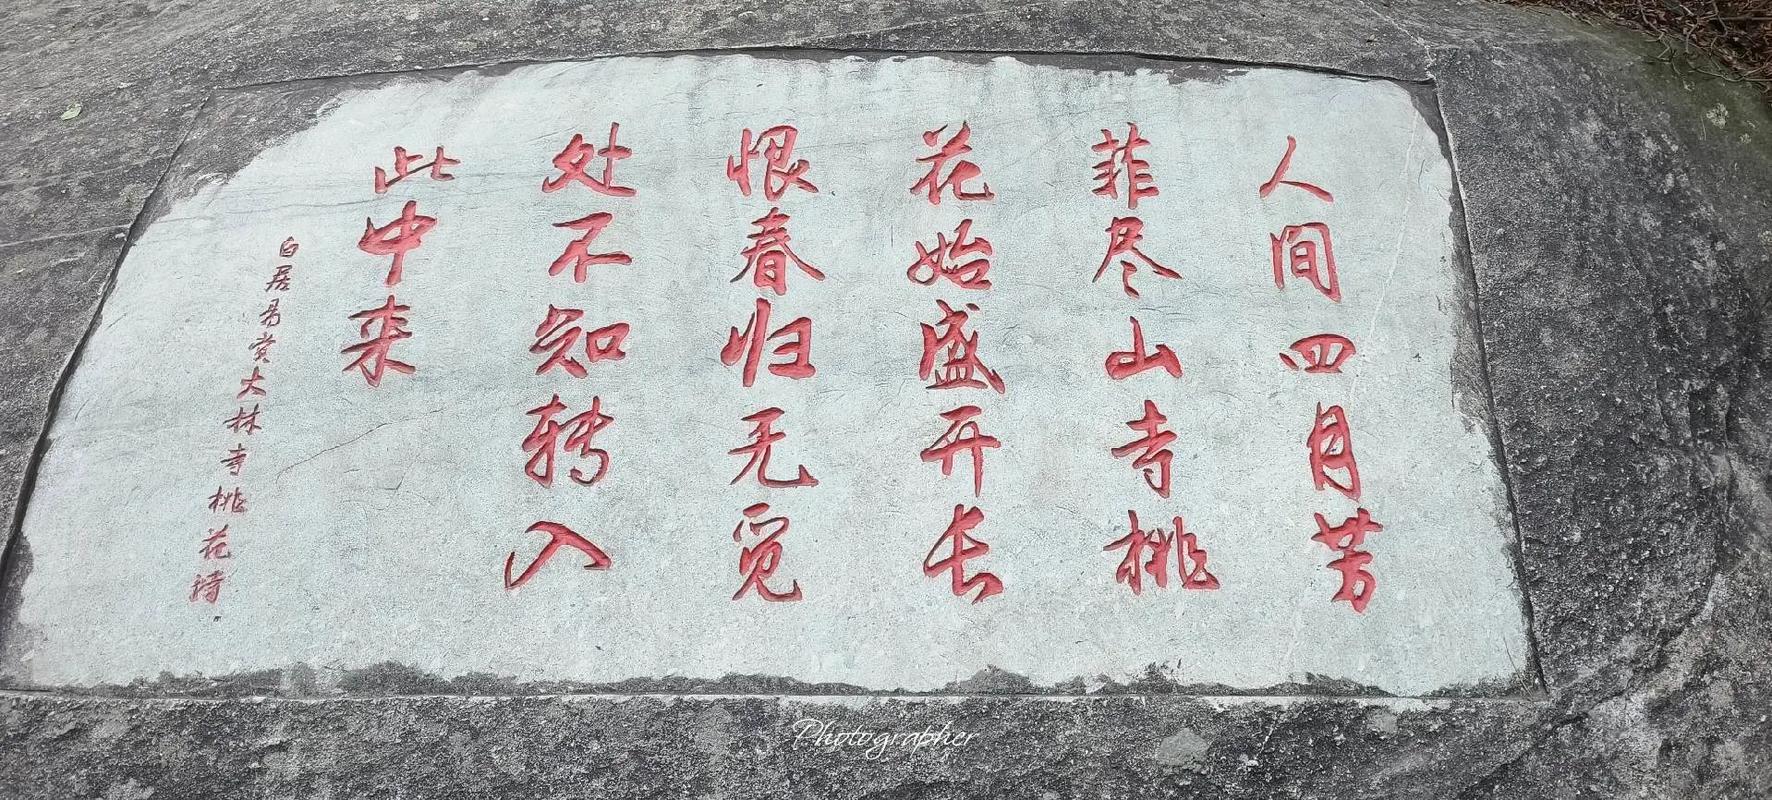 人间四月芳
菲尽山寺桃
花始盛开长
恨春归无觅
处不知转入
此中来
白居易赏大林寺桃花诗
Photographer